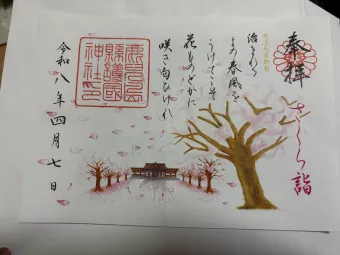 奉拝
さくら詣
治まれる
世の春風を
うけてこそ
花ものどかに
咲き匂ひけれ
鹿兒島
縣護國
神社印
令和八年四月七日